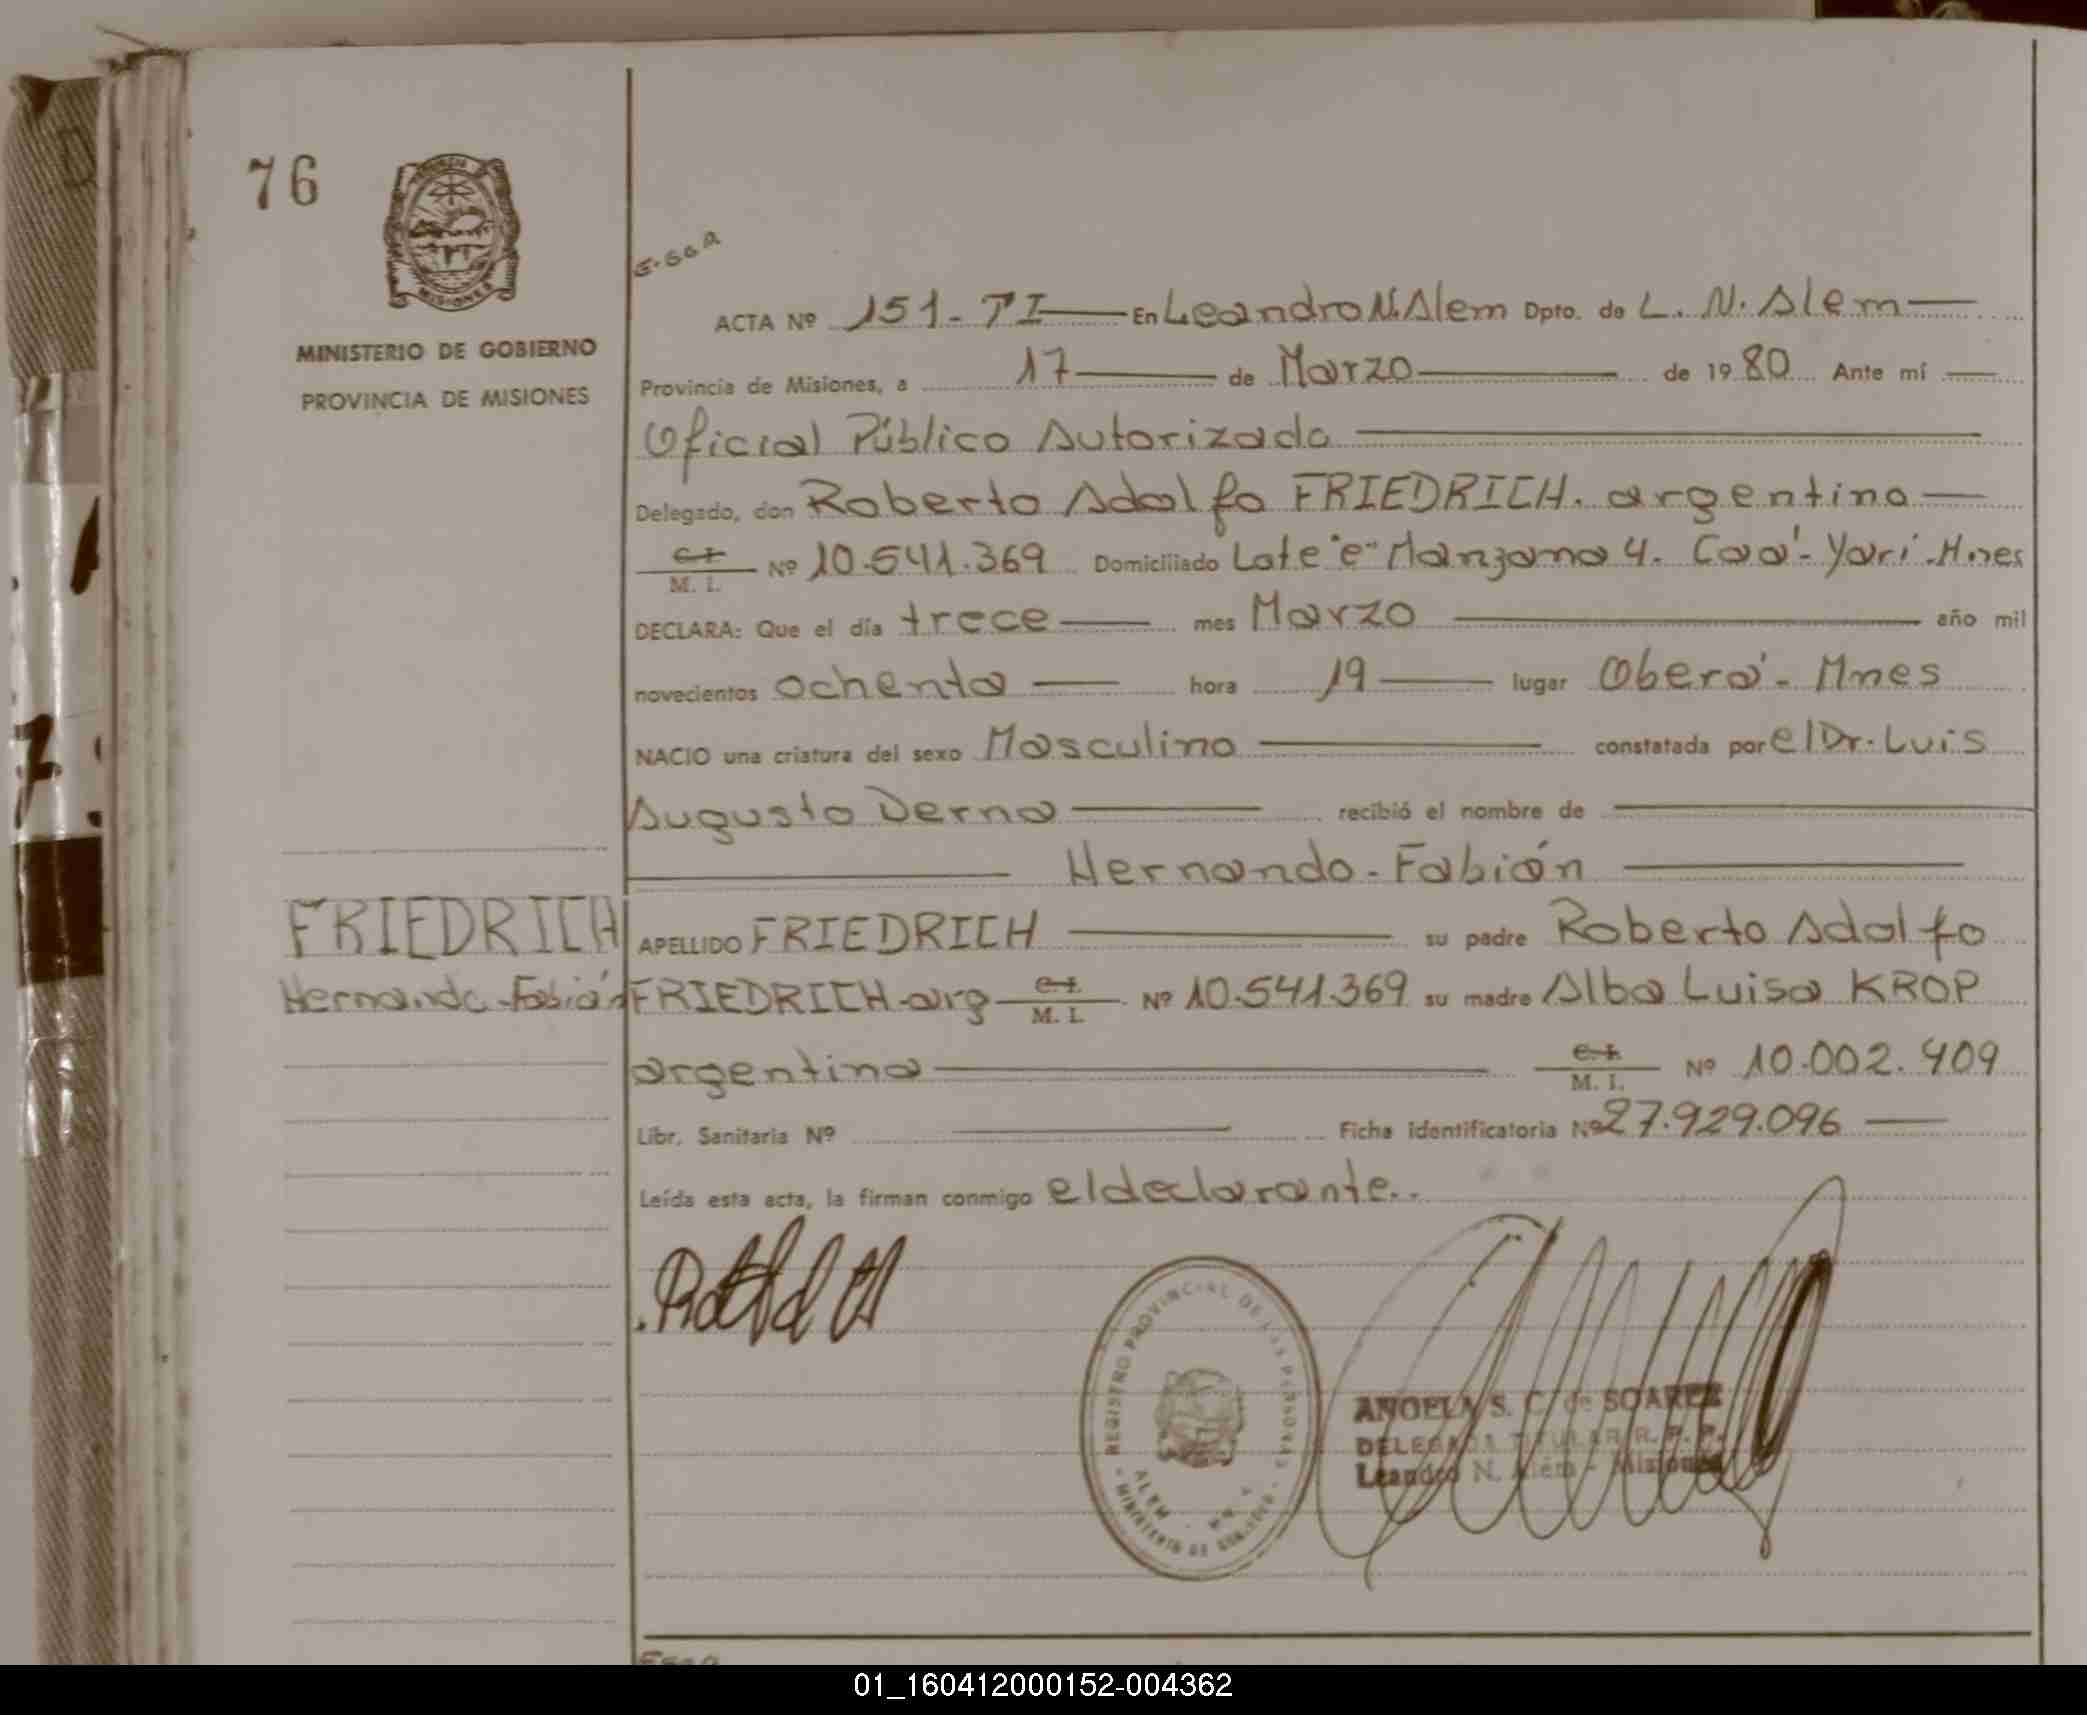 76
MISIONES
MINISTERIO DE GOBIERNO
PROVINCIA DE MISIONES
ACTA Nº 151-TI En Leandro N. Alem Dpto. de L. N. Alem
Provincia de Misiones, a 17 de Marzo de 1980 Ante mí
Oficial Público Autorizado
Delegado, don Roberto Adolfo FRIEDRICH. argentino
C.I. M. I. Nº 10.541.369 Domiciliado Lote "e" Manzana 4. Caá-Yarí-Mnes
DECLARA: Que el día trece mes Marzo año mil
novecientos ochenta hora 19 lugar Oberá - Mnes
NACIO una criatura del sexo Masculino constatada por el Dr. Luis
Augusto Derna recibió el nombre de
Hernando-Fabián
FRIEDRICH
APELLIDO FRIEDRICH su padre Roberto Adolfo
Hernando-Fabián
FRIEDRICH-arg C.I. M. I. Nº 10.541.369 su madre Alba Luisa KROP
argentina C.I. M. I. Nº 10.002.409
Libr. Sanitaria Nº Ficha identificatoria Nº 27.929.096
Leída esta acta, la firman conmigo el declarante..
REGISTRO PROVINCIAL DE LAS PERSONAS
ALEM
MINISTERIO DE GOBIERNO
ANGELA S. C. de SOAREZ
DELEGADA TITULAR R. P. P.
Leandro N. Além - Misiones
01_160412000152-004362